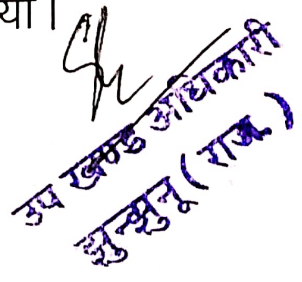 या।
उप खण्ड अधिकारी
झुन्झुनू (राज.)